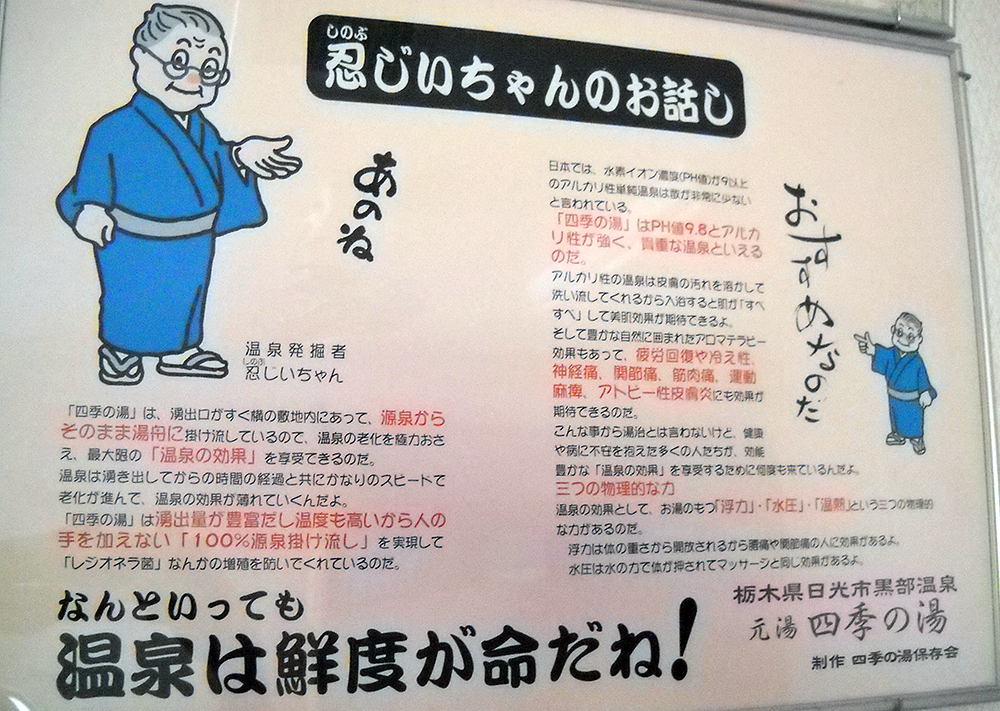 しのぶ
忍じいちゃんのお話し
あのね
温泉発掘者
しのぶ
忍じいちゃん
「四季の湯」は、湧出口がすぐ横の敷地内にあって、源泉から
そのまま湯舟に掛け流しているので、温泉の老化を極力おさ
え、最大限の「温泉の効果」を享受できるのだ。
温泉は湧き出してからの時間の経過と共にかなりのスピードで
老化が進んで、温泉の効果が薄れていくんだよ。
「四季の湯」は湧出量が豊富だし温度も高いから人の
手を加えない「100%源泉掛け流し」を実現して
「レジオネラ菌」なんかの増殖を防いでくれているのだ。
おすすめなのだ
日本では、水素イオン濃度(PH値)が9以上
のアルカリ性単純温泉は数が非常に少ない
と言われている。
「四季の湯」はPH値9.8とアルカ
リ性が強く、貴重な温泉といえる
のだ。
アルカリ性の温泉は皮膚の汚れを溶かして
洗い流してくれるから入浴すると肌が「すべ
すべ」して美肌効果が期待できるよ。
そして豊かな自然に囲まれたアロマテラピー
効果もあって、疲労回復や冷え性、
神経痛、関節痛、筋肉痛、運動
麻痺、アトピー性皮膚炎にも効果が
期待できるのだ。
こんな事から湯治とは言わないけど、健康
や病に不安を抱えた多くの人たちが、効能
豊かな「温泉の効果」を享受するために何度も来ているんだよ。
三つの物理的な力
温泉の効果として、お湯のもつ「浮力」・「水圧」・「温熱」という三つの物理的
な力があるのだ。
浮力は体の重さから開放されるから腰痛や関節痛の人に効果があるよ。
水圧は水の力で体が押されてマッサージと同じ効果があるよ。
なんといっても
温泉は鮮度が命だね!
栃木県日光市黒部温泉
元湯 四季の湯
制作 四季の湯保存会